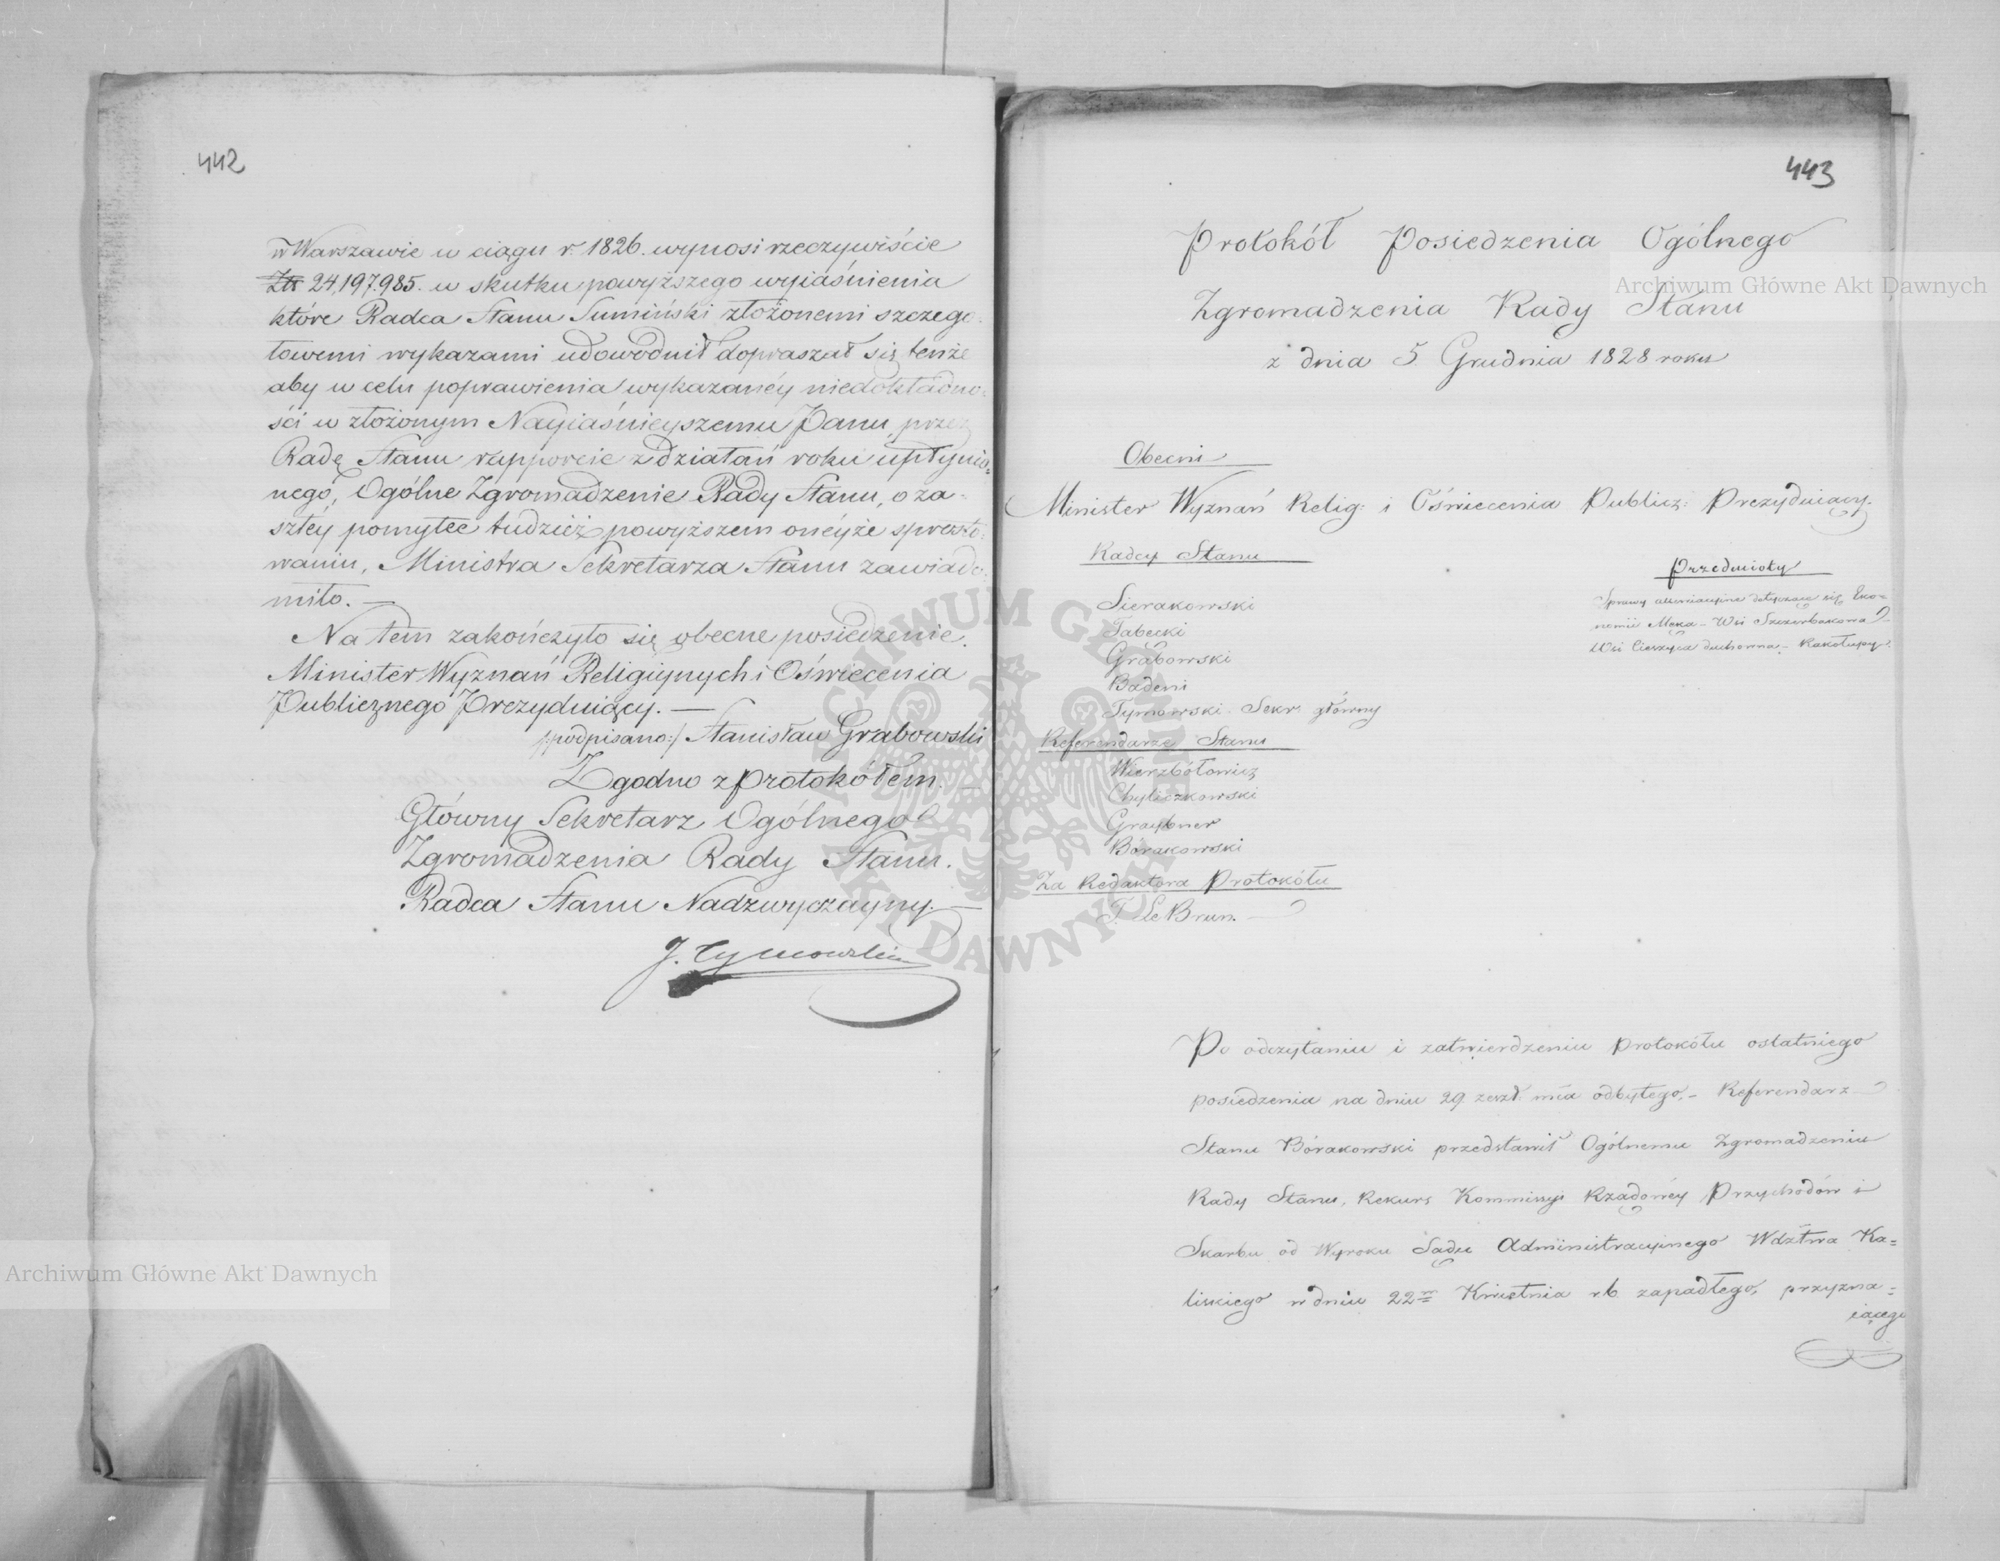 442
w Warszawie w ciągu r. 1826. wynosi rzeczywiście
Złt 24,197,985. w skutku powyższego wyiaśnienia
które Radca Stanu Sumiński złożonemi szczegó-
łowemi wykazami udowodnił dopraszał się tenże
aby w celu poprawienia wykazanéy niedokładno-
ści w złożonym Nayiaśnieyszemu Panu, przez
Radę Stanu rapporcie z działań roku upłynio-
nego, Ogólne Zgromadzenie Rady Stanu, o za-
szłéy pomyłce tudzież powyższem onéyże sprosto-
waniu, Ministra Sekretarza Stanu zawiado-
miło. —
Na tem zakończyło się obecne posiedzenie.
Minister Wyznań Religiynych i Oświecenia
Publicznego Prezyduiący. —
/podpisano:/ Stanisław Grabowski
Zgodno z protokółem. —
Główny Sekretarz Ogólnego
Zgromadzenia Rady Stanu.
Radca Stanu Nadzwyczayny. —
J. Tymowski
443
Protokół Posiedzenia Ogólnego
Zgromadzenia Rady Stanu
z dnia 5 Grudnia 1828 roku
Obecni
Minister Wyznań Relig: i Oświecenia Publicz: Prezyduiący.
Radcy Stanu
Sierakowski
Tabecki
Grabowski
Badeni
Tymowski Sekr: główny
Referendarze Stanu
Wierzbołowicz
Chyliczkowski
Graybner
Bórakowski
Za Redaktora Protokółu
F. Le Brun. —
Przedmioty
Sprawy alienacyine dotyczące się Eko-
nomii Męka - Wsi Szczerbakowa
Wsi Cieszyca duchowna - Rakołupy.
Po odczytaniu i zatwierdzeniu Protokółu ostatniego
posiedzenia na dniu 29 zeszł. mca odbytego, - Referendarz
Stanu Bórakowski przedstawił Ogólnemu Zgromadzeniu
Rady Stanu, Rekurs Kommissyi Rządowéy Przychodów i
Skarbu od Wyroku Sądu Administracyinego Wdztwa Ka=
liskiego w dniu 22 Kwietnia r.b. zapadłego, przyzna=
iącego
Archiwum Główne Akt Dawnych
Archiwum Główne Akt Dawnych
ARCHIWUM GŁÓWNE
AKT DAWNYCH